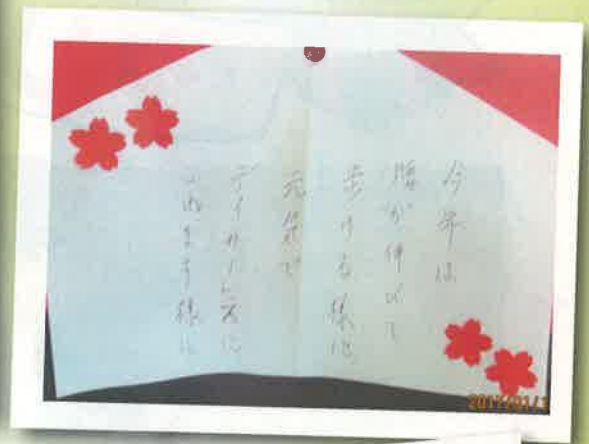 今年は
腰が伸びて
歩ける様に
元気で
デイサービスに
来れます様に
2017/01/1